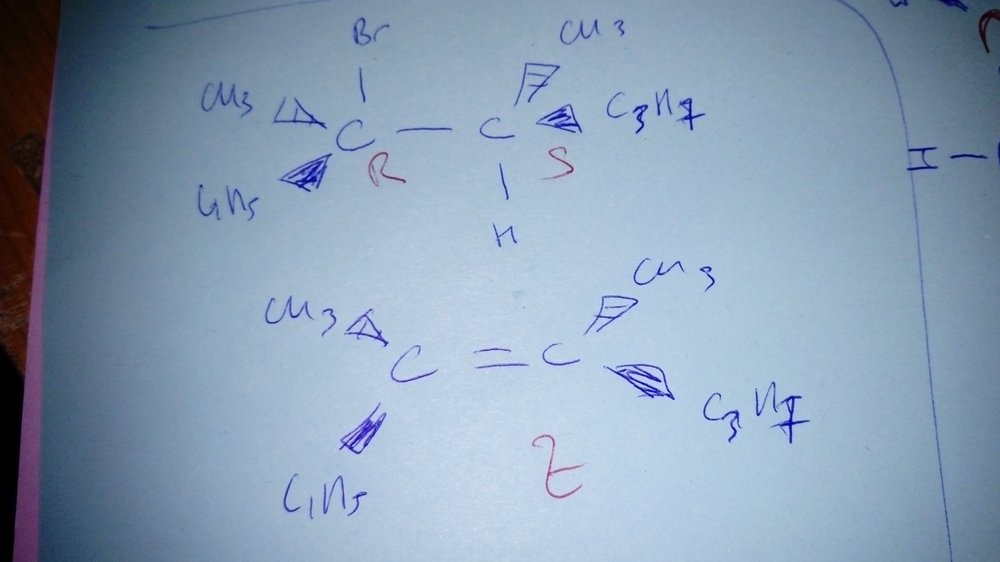 Br
CH3
CH3
C — C
C3H7
C2H5
R
S
H
CH3
CH3
C = C
C3H7
C2H5
Z
H –